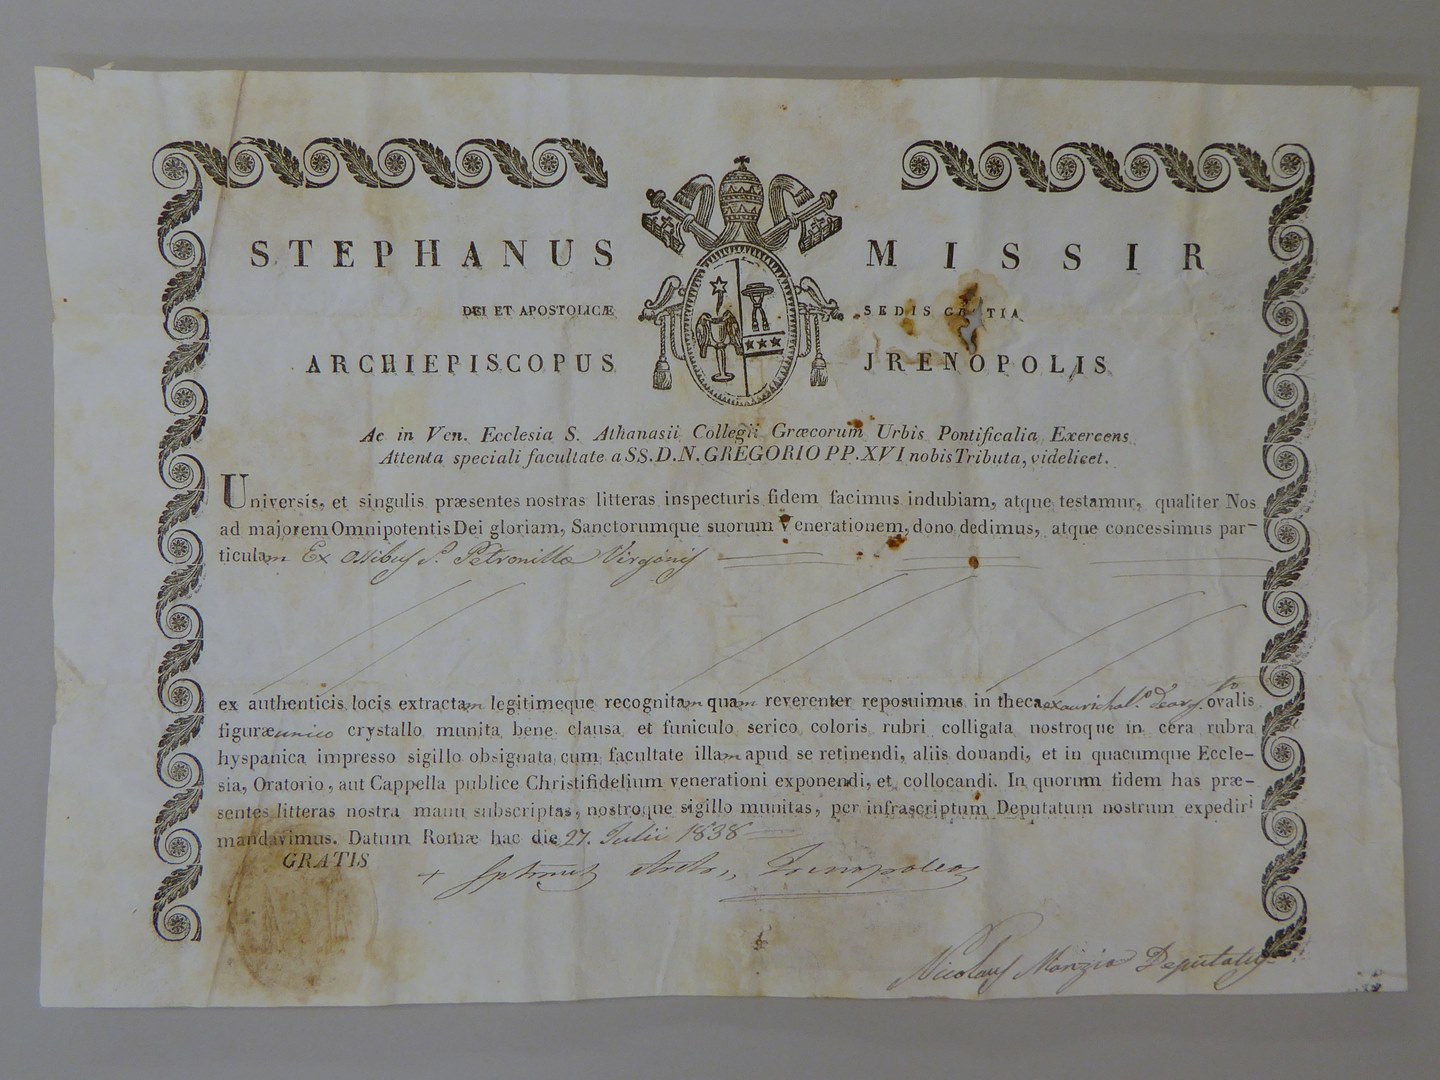 STEPHANUS MISSIR
DEI ET APOSTOLICÆ SEDIS GRATIA
ARCHIEPISCOPUS JRENOPOLIS
Ac in Ven. Ecclesia S. Athanasii Collegii Græcorum Urbis Pontificalia Exercens
Attenta speciali facultate a SS. D. N. GREGORIO PP. XVI nobis Tributa, videlicet.
Universis, et singulis præsentes nostras litteras inspecturis fidem facimus indubiam, atque testamur, qualiter Nos
ad majorem Omnipotentis Dei gloriam, Sanctorumque suorum Venerationem, dono dedimus, atque concessimus par-
ticulam Ex Ossibus S. Petronillæ Virginis
ex authenticis locis extractam legitimeque recognitam quam reverenter reposuimus in theca ex aurichal.º ovalis
figuræ unico crystallo munita bene clausa et funiculo serico coloris rubri colligata nostroque in cera rubra
hyspanica impresso sigillo obsignata cum facultate illam apud se retinendi, aliis donandi, et in quacumque Eccle-
sia, Oratorio, aut Cappella publice Christifidelium venerationi exponendi, et collocandi. In quorum fidem has præ-
sentes litteras nostra manu subscriptas, nostroque sigillo munitas, per infrascriptum Deputatum nostrum expediri
mandavimus. Datum Romæ hac die 27. Julii 1838
GRATIS
+
Nicolaus Manzia Deputatus